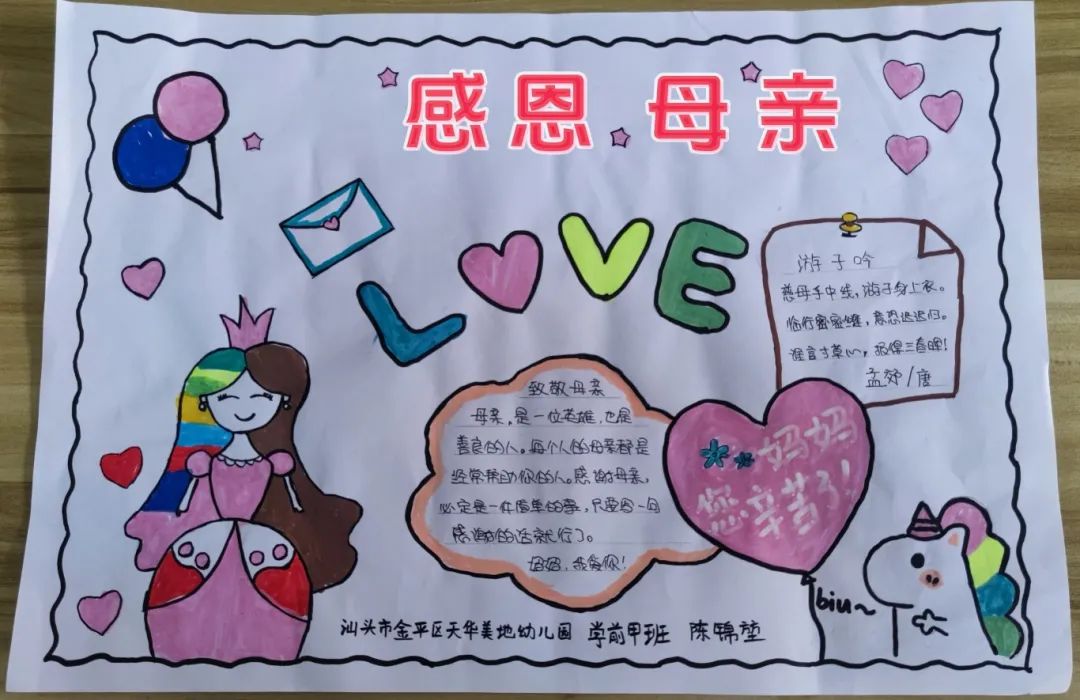 感恩 母亲
LOVE
游子吟
慈母手中线，游子身上衣。
临行密密缝，意恐迟迟归。
谁言寸草心，报得三春晖！
孟郊/唐
致敬母亲
母亲，是一位英雄，也是
善良的人。每个人的母亲都是
经常帮助你的人。感谢母亲，
必定是一件简单的事，只要图一句
感谢的话就行了。
妈妈，我爱你！
妈妈
您辛苦了！
biu~
汕头市金平区天华美地幼儿园 学前甲班 陈锦堃